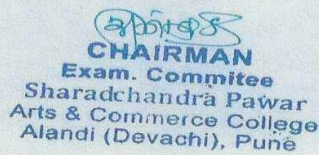 CHAIRMAN
Exam. Commitee
Sharadchandra Pawar
Arts & Commerce College
Alandi (Devachi), Pune